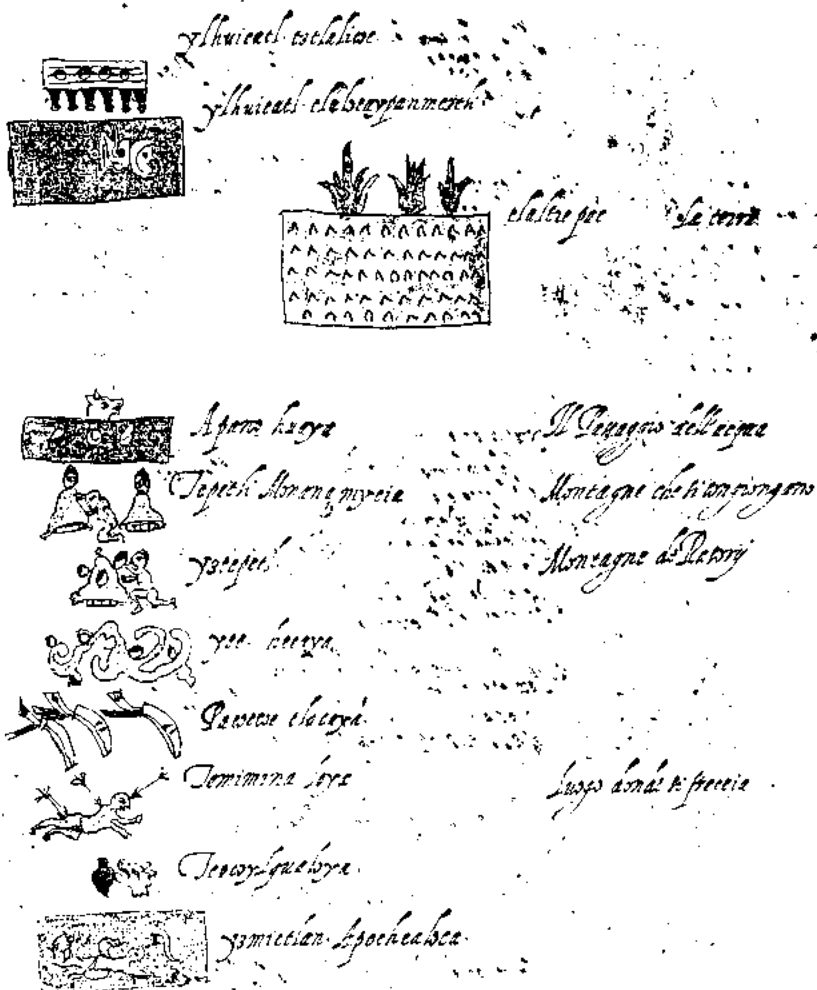 ylhuicatl tetlaliloc
ylhuicatl tlalocaypanmeteh
tlalticpac La terra
Apano huaya Il Passagio dell'acqua
Tepetli Monanamycia Montagne che si congiongano
yztepetl Montagne di Rasorij
yee hecaya
Pacoecoe tlacaya
Temimina loya Luogo donde si freccia
Teocoylqualoya
yzmictlan Apochcaloca